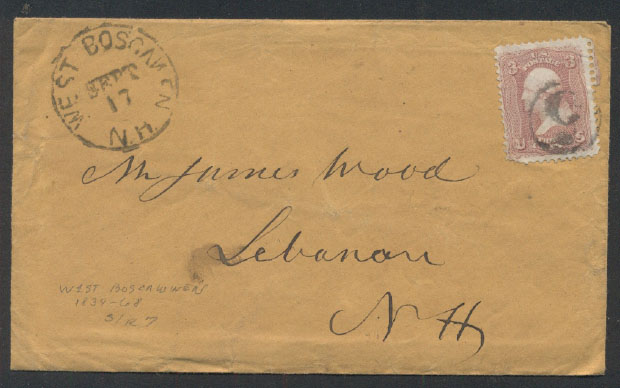 WEST BOSCAWEN
SEPT
17
N.H
3 U.S. 3
POSTAGE
U S
Mr James Wood
Lebanon
N H
WEST BOSCAWWEN
1834-68
S/R 7